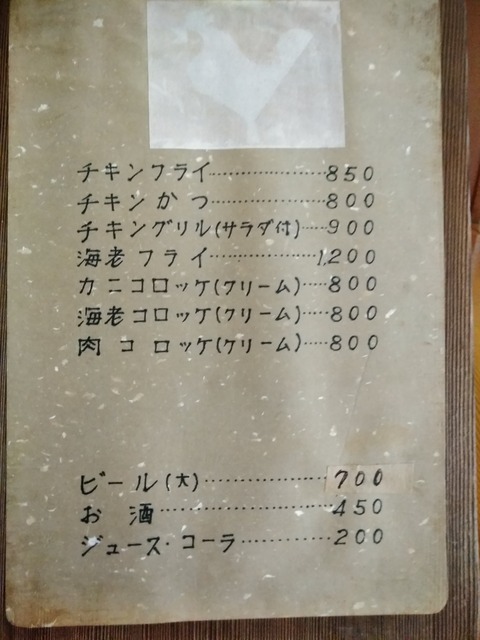 チキンフライ……………850
チキンかつ……………800
チキングリル(サラダ付)……900
海老フライ……………1,200
カニコロッケ(クリーム)……800
海老コロッケ(クリーム)……800
肉コロッケ(クリーム)……800
ビール(大)……………700
お酒……………450
ジュース・コーラ……………200